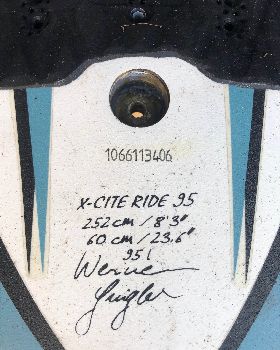 1066113406
X-CITE RIDE 95
252 cm / 8'3"
60 cm / 23.6"
95 l
Werner
Gnigler